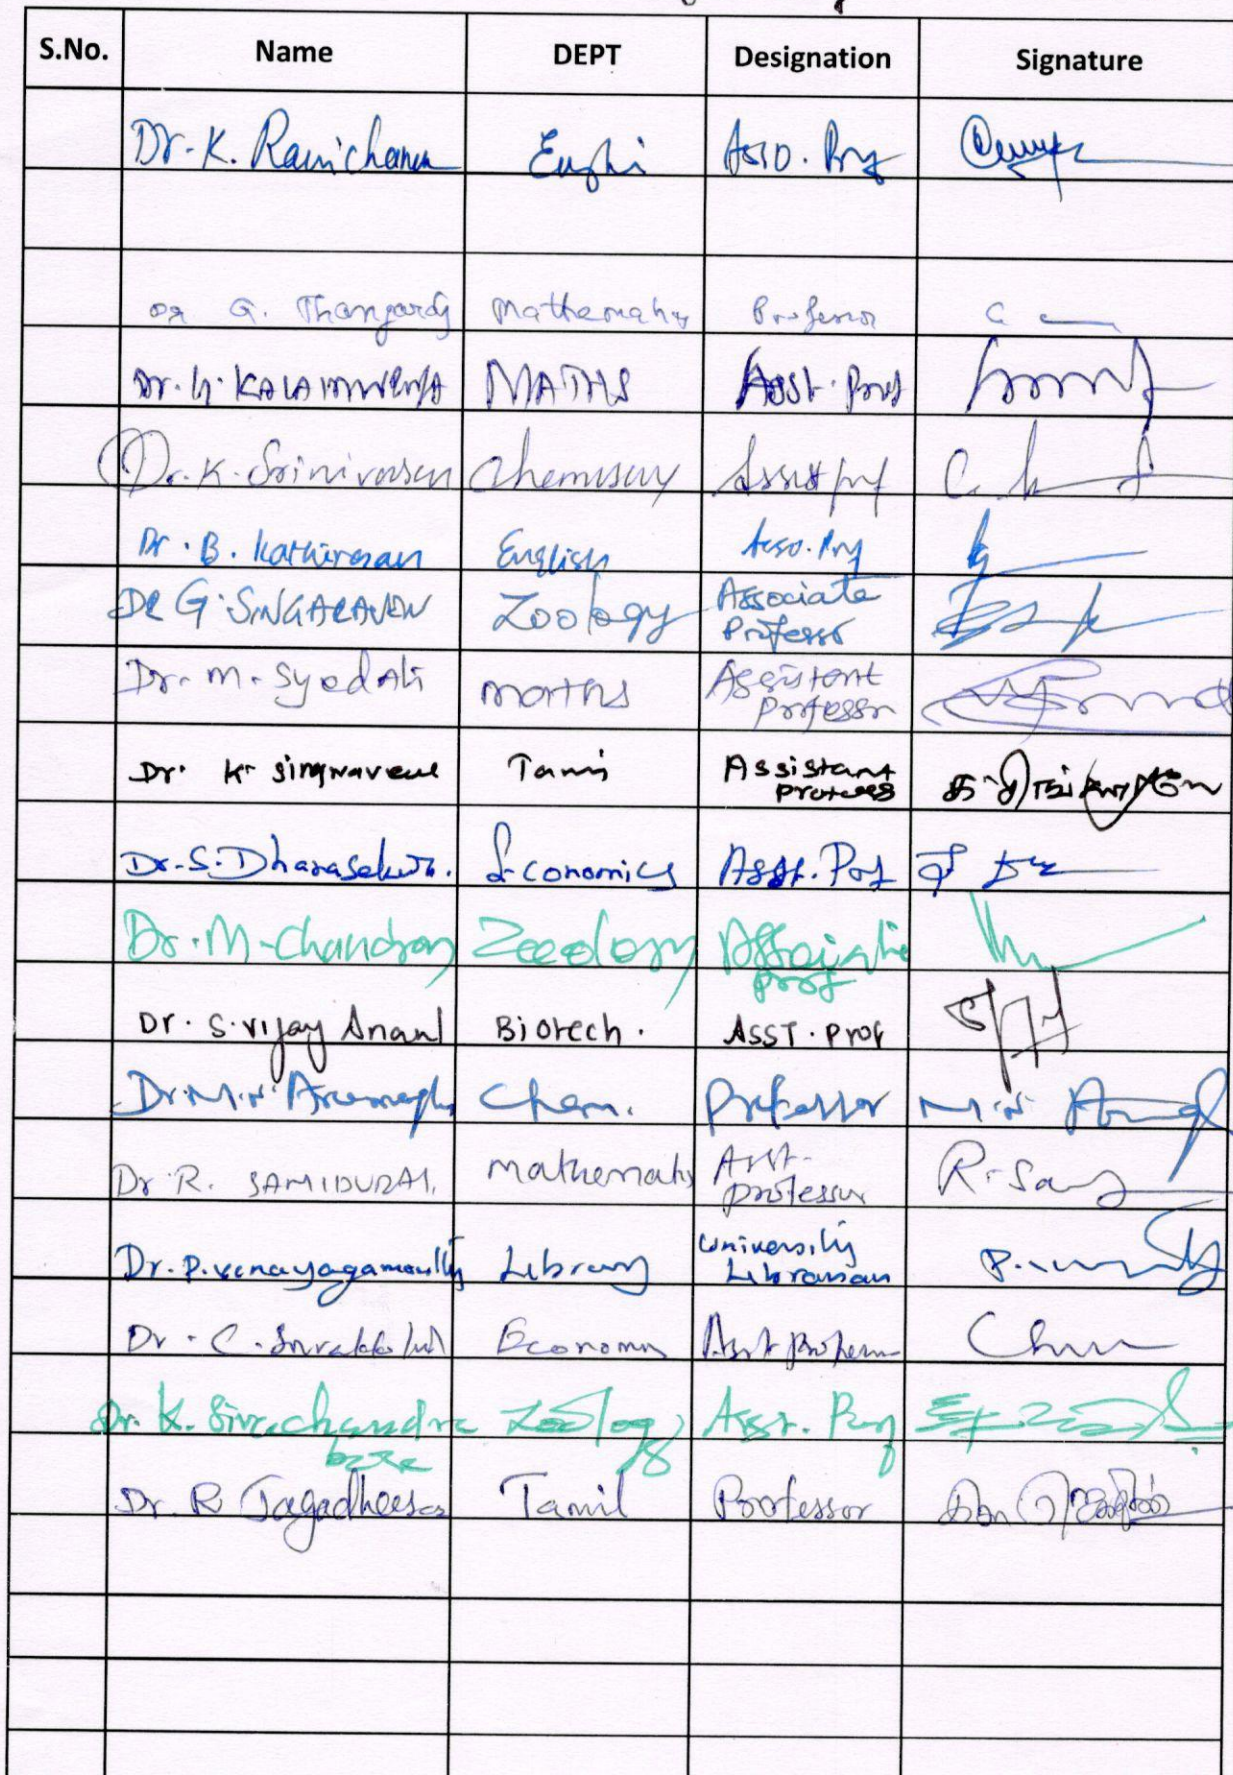 S.No. Name DEPT Designation Signature
Dr. K. Ravichan Asso. Prof
G. Thangaraj Mathematics Professor
Dr. MATHS Asst. Prof
Dr. K. Srinivasan Chemistry Assist prof
Dr. B. Kathiresan English Asso. Prof
DR G. SINGARAVEL Zoology Associate
Professor
Dr. M. Syed Ali maths Assistant
Professor
Dr. K. Singaravelu Tamil Assistant
Professor
Dr. S. Dhanasekaran. Economics Asst. Prof
Dr. M. Chandran Zoology Associate
prof
Dr. S. Vijay Anand Biotech. ASST. Prof
Dr. M. Chem. Professor M.
Dr R. SAMIDURAI. Mathematics Asst.
professor
Dr. P. Vinayagamoorthy Library University
Librarian
Dr. C. Economics Asst Professor
Dr. K. Sivachandra Zoology Asst. Prof
bose
Dr. R Jagadheesan Tamil Professor